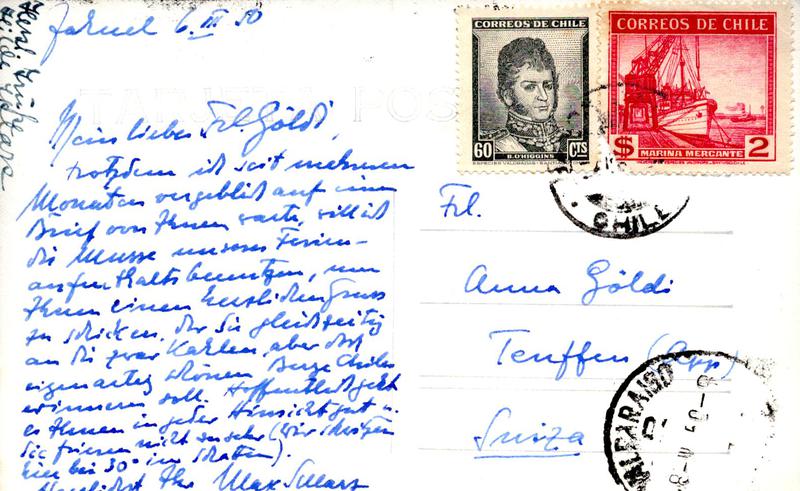 6. III 50
TARJETA POS
CORREOS DE CHILE
60 CTS
B. O'HIGGINS
CORREOS DE CHILE
MARINA MERCANTE
$ 2
CHILE
Mein liebes Frl. Göldi,
trotzdem ich seit mehreren
Monaten vergeblich auf einen
Brief von Ihnen warte, will ich
die Musse unseres Ferien-
aufenthalts benützen, um
Ihnen einen herzlichen Gruss
zu schicken, der Sie gleichzeitig
an die zwar kahlen, aber doch
eigenartig schönen Berge Chiles
erinnern soll. Hoffentlich geht
es Ihnen in jeder Hinsicht gut u.
Sie frieren nicht zu sehr (wir schwitzen
hier bei 30° im Schatten).
Herzlichst Ihr Max
Frl.
Anna Göldi
Teuffen (App)
Suiza
VALPARAISO